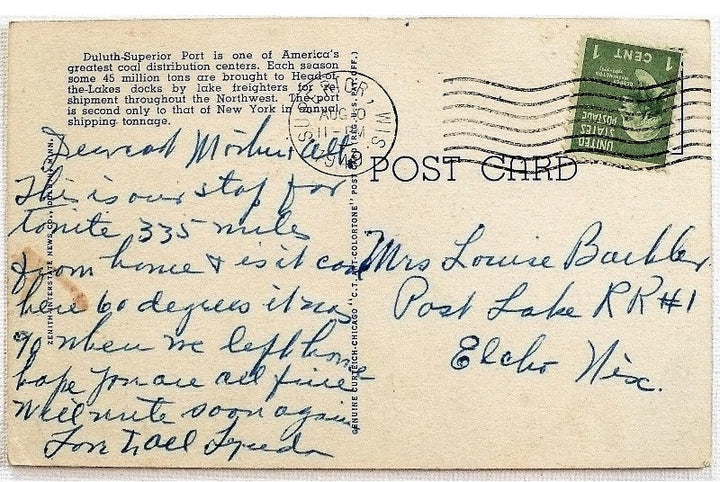 Duluth-Superior Port is one of America's
greatest coal distribution centers. Each season
some 45 million tons are brought to Head-of-
the-Lakes docks by lake freighters for re-
shipment throughout the Northwest. The port
is second only to that of New York in annual
shipping tonnage.
SUPERIOR, WIS.
AUG 10
11 - PM
UNITED STATES POSTAGE
1 CENT 1
POST CARD
Dearest Mother & all.
This is our stop for
tonite 335 miles
from home & is it cool
here 60 degrees it was
90 when we left home
hope you are all fine-
Will write soon again
Love to all
ZENITH INTERSTATE NEWS CO., DULUTH, MINN.
GENUINE CURTEICH-CHICAGO "C.T. ART-COLORTONE" POST CARD (REG. U.S. PAT. OFF.)
Mrs Louise
Post Lake RR#1
Elcho Wis.